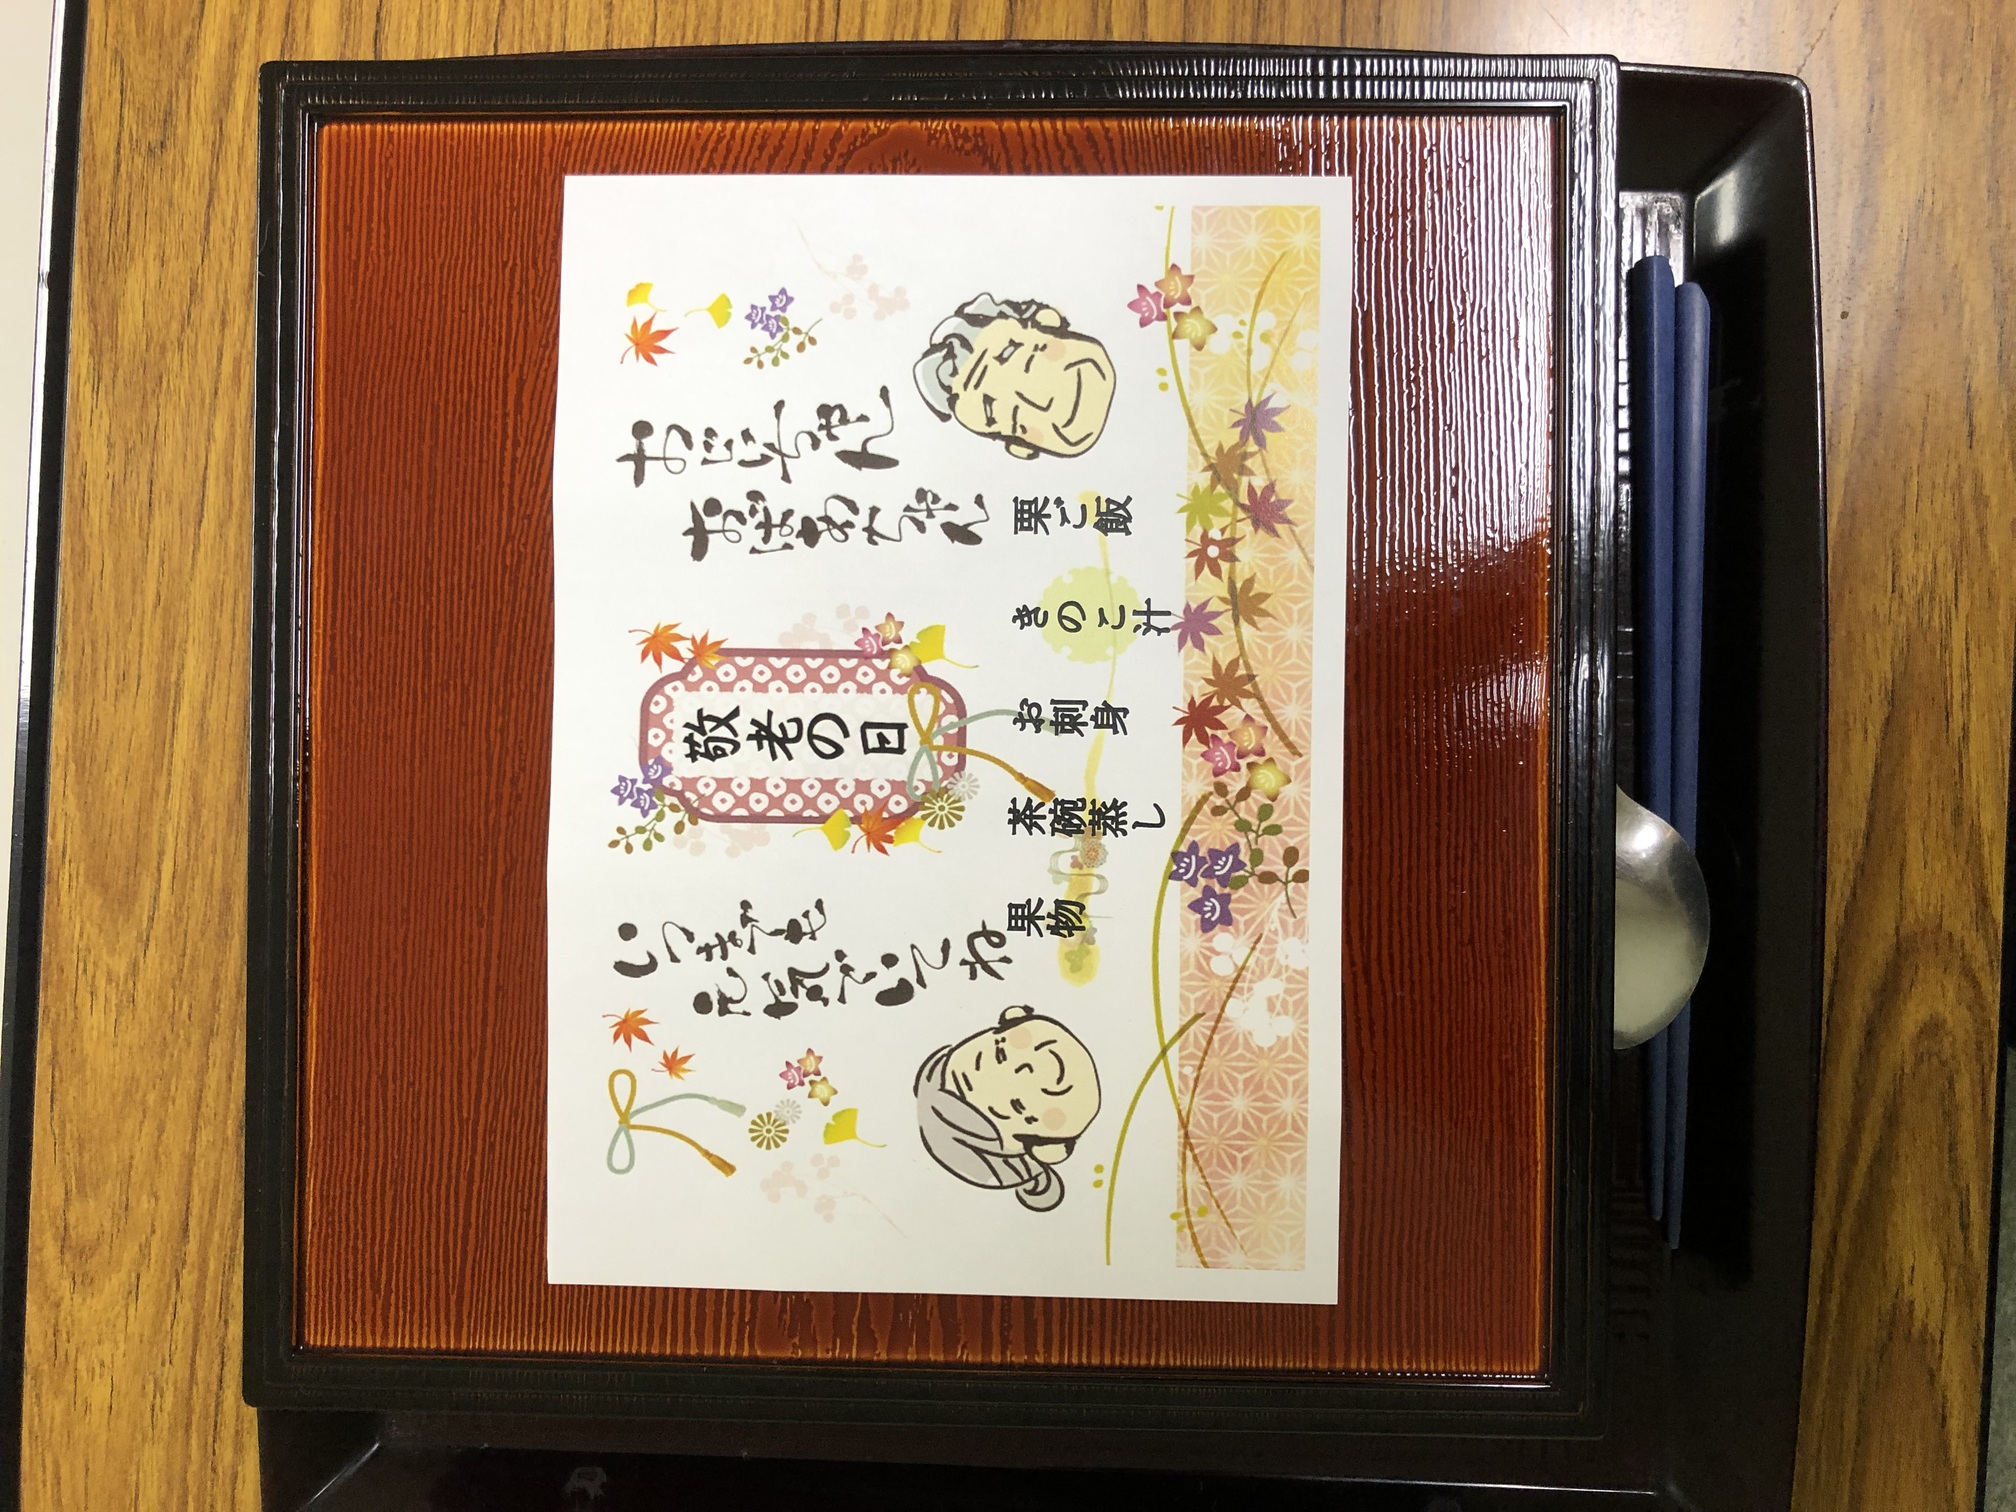 おじいちゃん
おばあちゃん
敬老の日
いつまでも
元気でいてね
栗ご飯
きのこ汁
お刺身
茶碗蒸し
果物